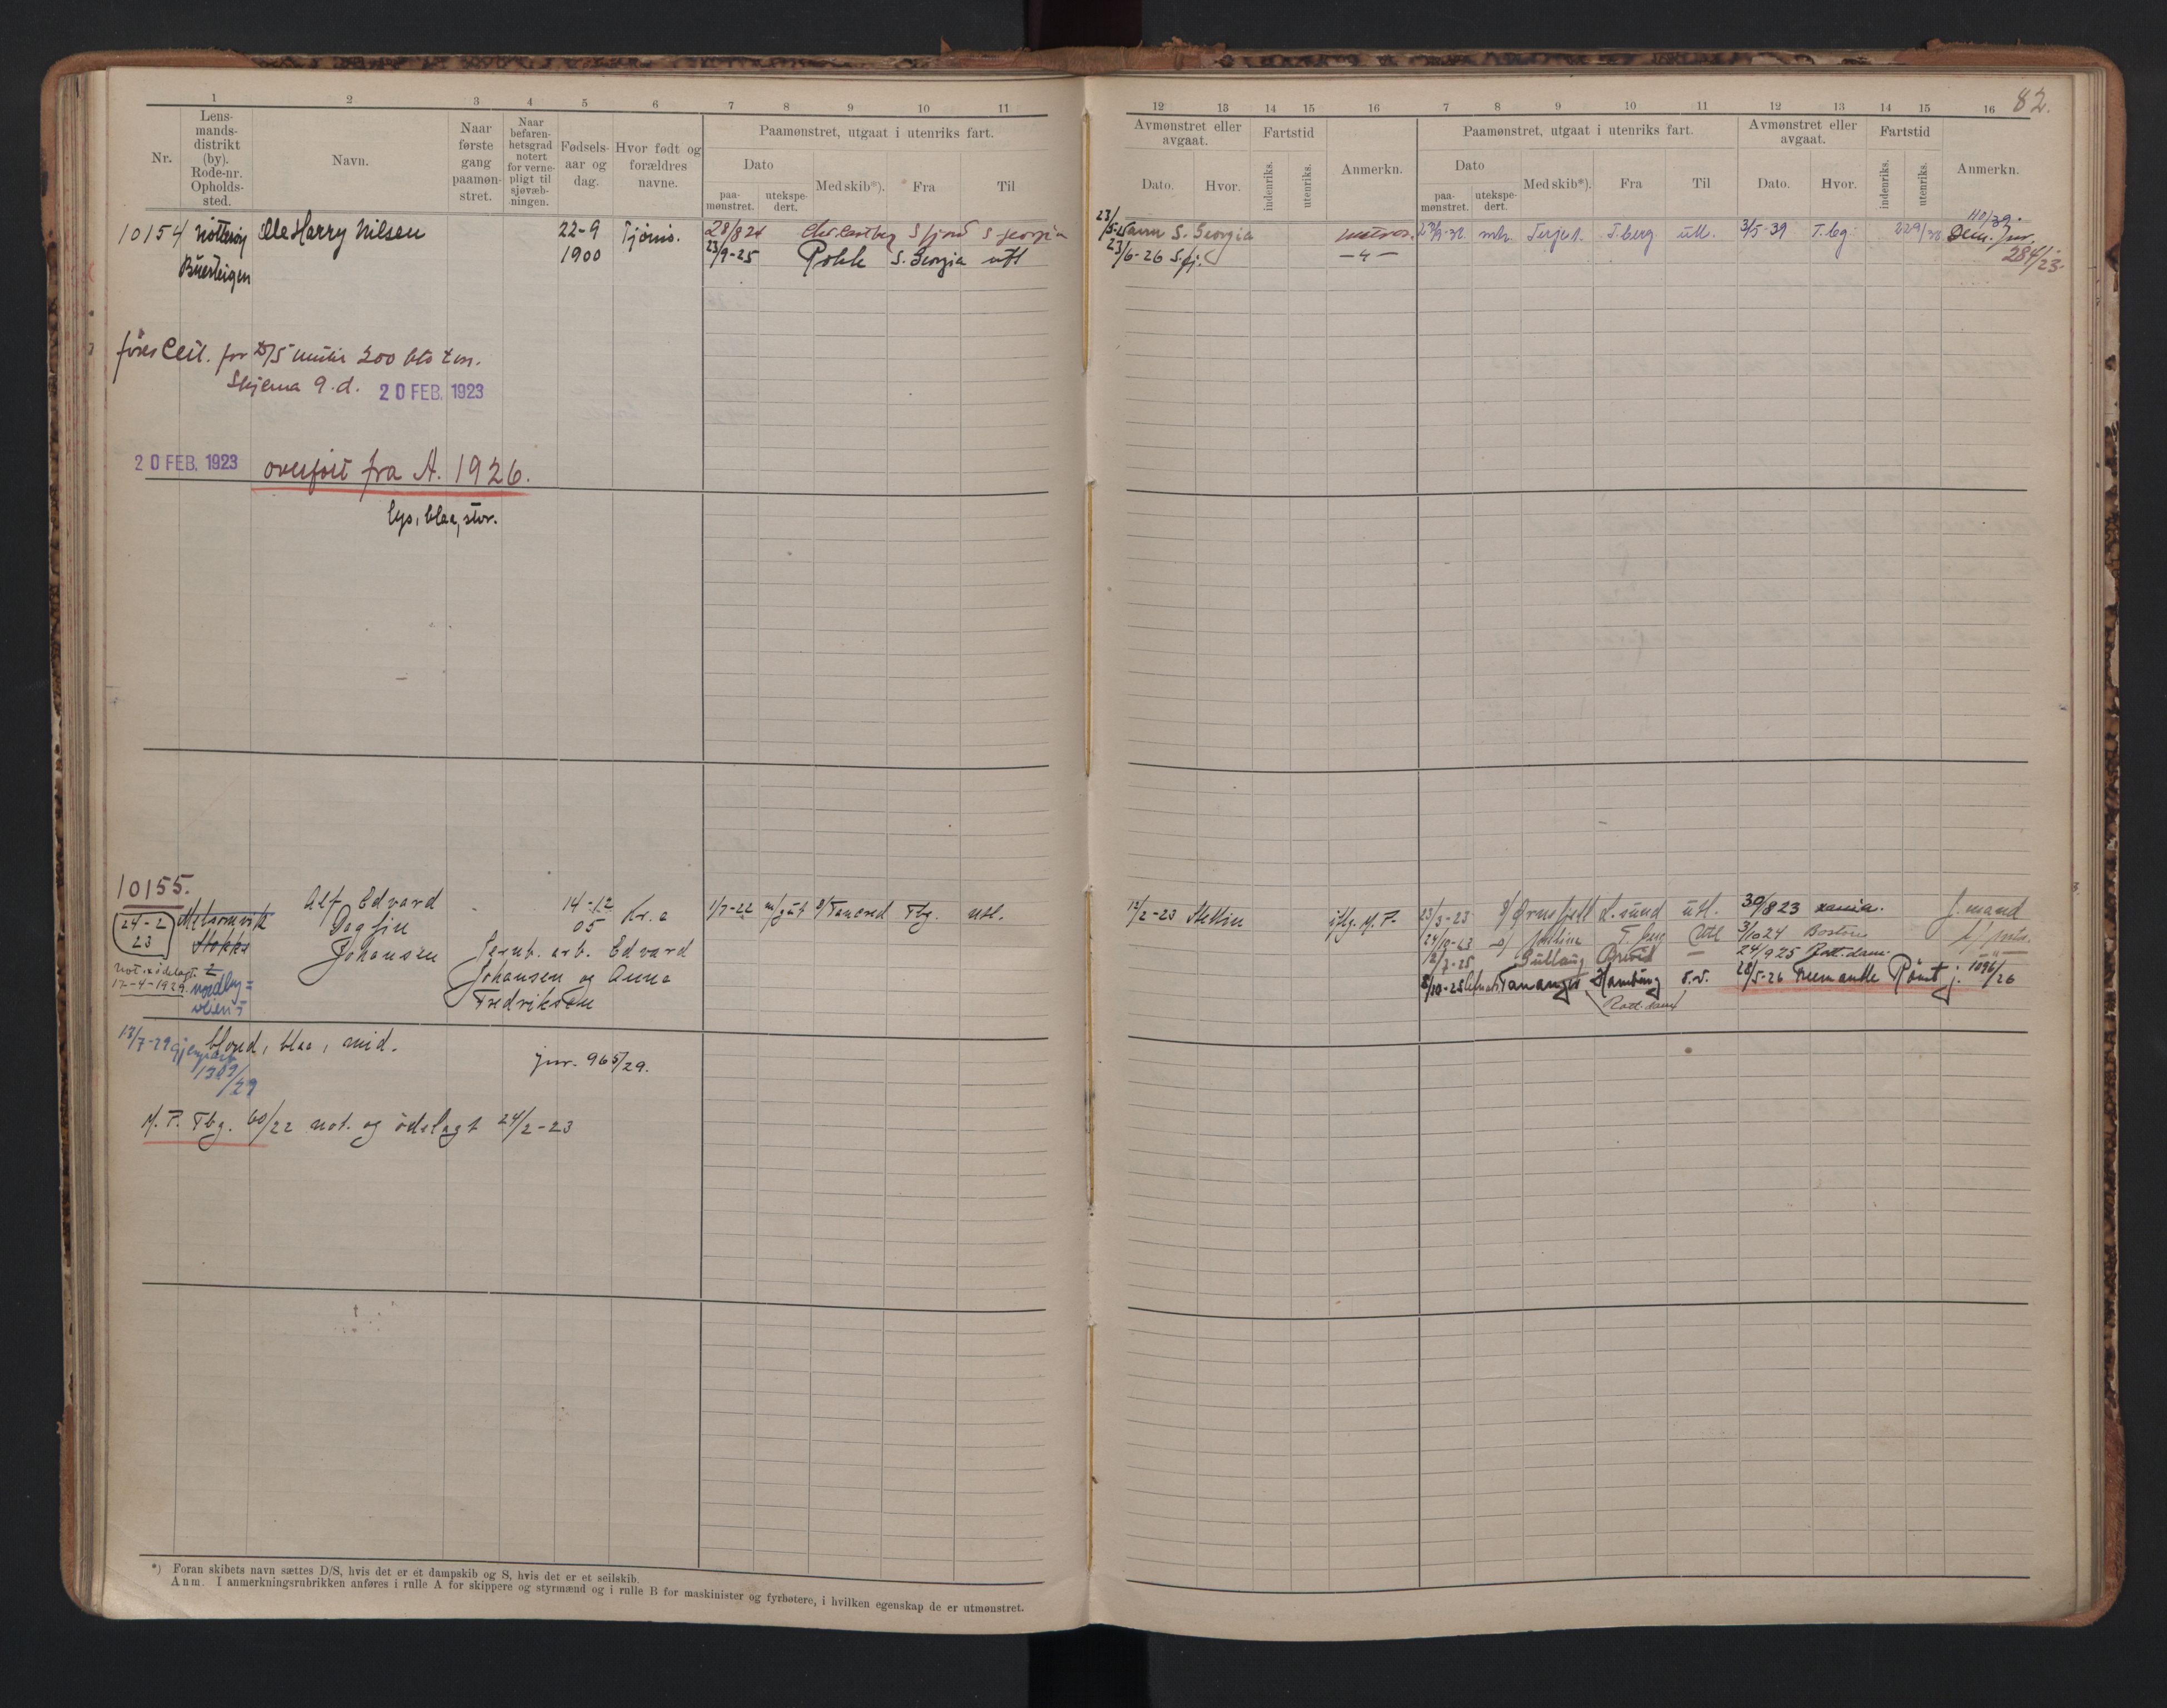 1 2 3 4 5 6 7 8 9 10 11
Nr.
Lens-
mands-
distrikt
(by).
Rode-nr.
Opholds-
sted.
Navn.
Naar
første
gang
paamøn-
stret.
Naar
befaren-
hetsgrad
notert
for verne-
pligt til
sjøvæb-
ningen.
Fødsels-
aar og
dag.
Hvor født og
forældres
navne.
Paamønstret, utgaat i utenriks fart.
Dato
paa-
mønstret.
utekspe-
dert.
Med skib*).
Fra
Til
10154 Nøtterøy Olle Harry Nilsen 22-9 Tjømø. 28/8 24 S fjord S georgia
Buersteigen 1900 23/9-25 Polk S. Georgia utl
før Cert. for D/S under 200 bto ton.
Skjema 9. d. 20 FEB. 1923
20 FEB. 1923 overført fra A. 1926.
lys, blaa, stor.
10155.
24-2
23
Melsomvik
Stokke
Alf Edvard
Dagfin
Johansen
14-12
05
Kr.a
1/7-22 Tancred Tbg. utl.
Jernb. arb. Edvard
Johansen og Anna
Fredriksen
not. ødelagt
17-4-1929
13/7-29
1309/29
blond, blaa, mid.
jnr. 965/29.
M. P. Tbg. 60/22 not. og ødelagt 24/2-23
*) Foran skibets navn sættes D/S, hvis det er et dampskib og S, hvis det er et seilskib.
Anm. I anmerkningsrubrikken anføres i rulle A for skippere og styrmænd og i rulle B for maskinister og fyrbøtere, i hvilken egenskap de er utmønstret.
82.
12 13 14 15 16 7 8 9 10 11 12 13 14 15 16
Avmønstret eller
avgaat.
Dato.
Hvor.
Fartstid
indenriks.
utenriks.
Anmerkn.
Paamønstret, utgaat i utenriks fart.
Dato
paa-
mønstret.
utekspe-
dert.
Med skib*).
Fra
Til
Avmønstret eller
avgaat.
Dato.
Hvor.
Fartstid
indenriks.
utenriks.
Anmerkn.
110/39.
23/5-25 S. Georgia matros. Terje 1. T.berg utl. 3/5-39 T.bg. jnr.
23/6-26 S.fj. 284/23.
12/2-23 Stettin M. P. 23/3-23 Ørnefjell L.sund utl. 30/8 23 xania. J. mand
24/10-23 T. berg utl 3/10 24 Boston
12/2-25 Gullaug Brevik — 24/9 25 Rott.dam
8/10-25 Tananger Hamburg s.v. 28/5-26 Rømt j. 1096/26
Rott.dam